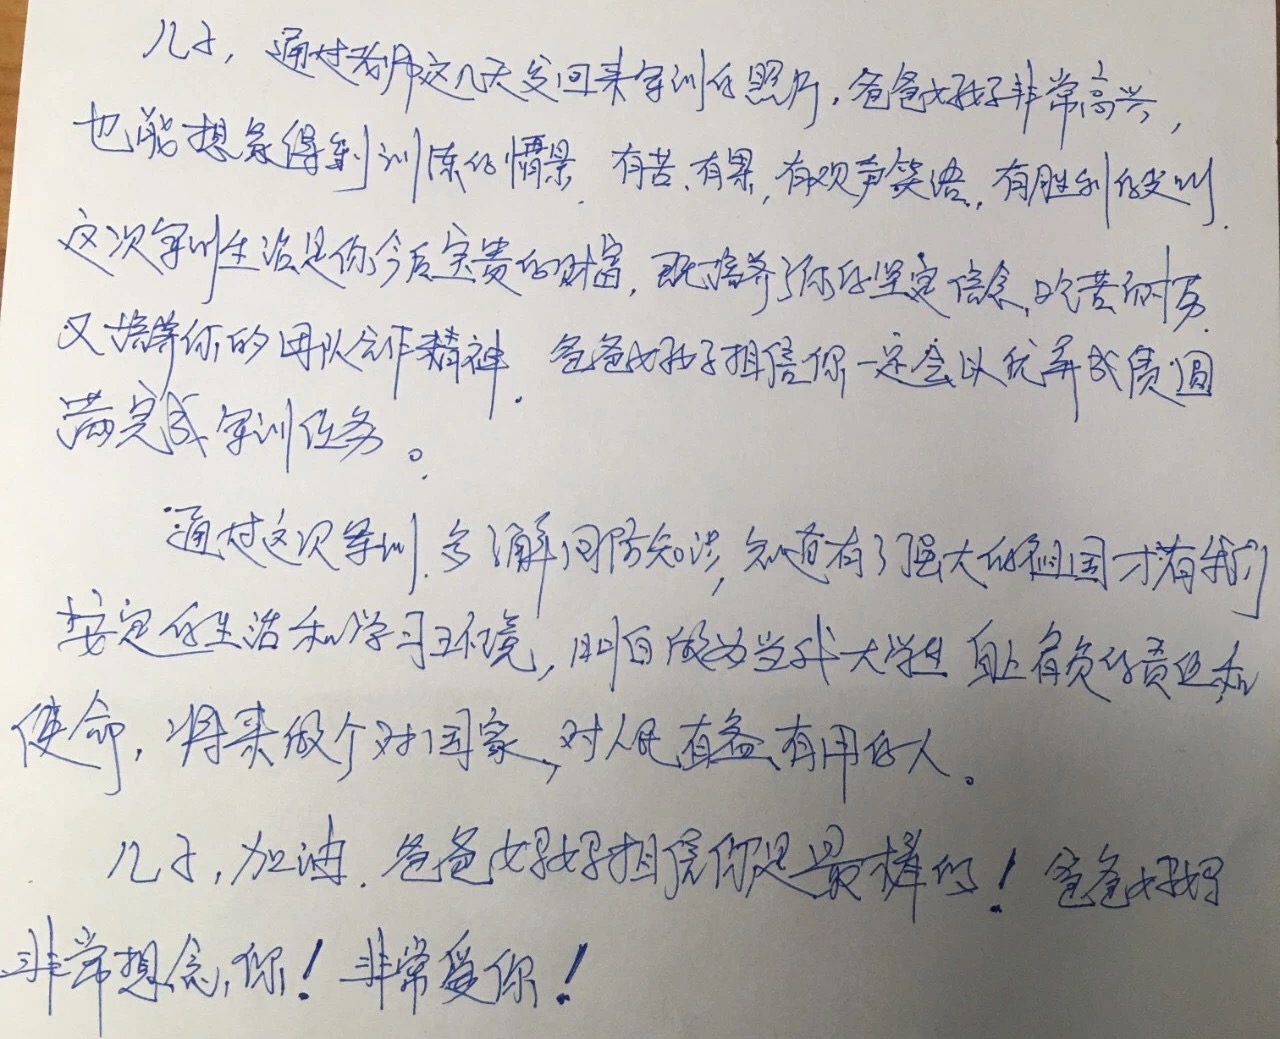 儿子，通过老师这几天发回来军训的照片，爸爸妈妈非常高兴，
也能想象得到训练的情景，有苦、有累，有欢声笑语，有胜利的
这次军训生活是你今后宝贵的财富，既培养了你的坚定信念，吃苦耐劳
又培养你的团队合作精神．爸爸妈妈相信你一定会以优异成绩圆
满完成军训任务。
通过这次军训，多了解国防知识，知道有了强大的祖国才有我们
安定的生活和学习环境，明白做为当代大学生身上肩负的责任和
使命，将来做个对国家、对人民有益、有用的人。
儿子，加油．爸爸妈妈相信你是最棒的！爸爸妈妈
非常想念你！非常爱你！